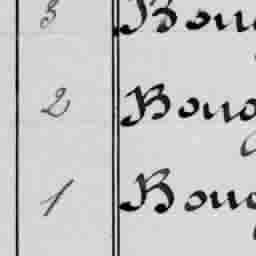 3 Boug
2 Boug
1 Boug